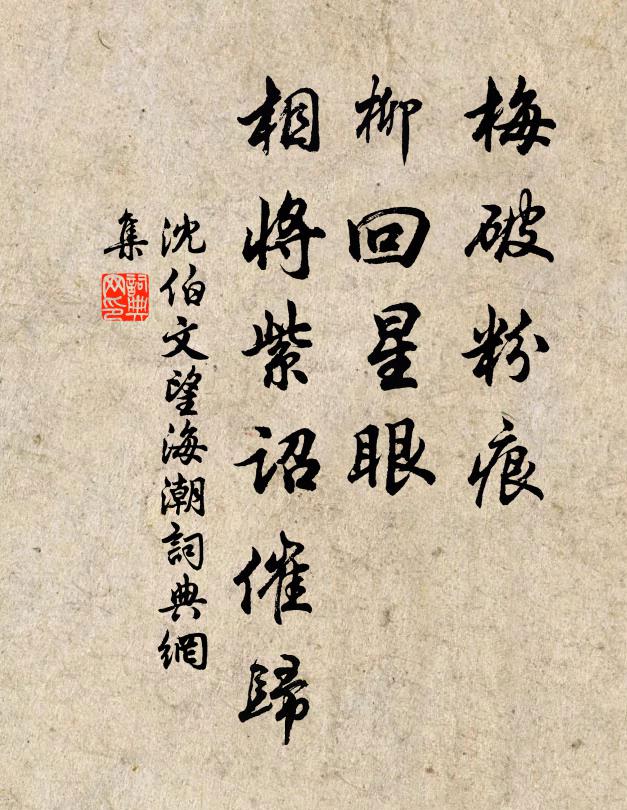 梅破粉痕
柳回星眼
相将紫詔催歸
沈伯文望海潮詞典網
集
詞典網印